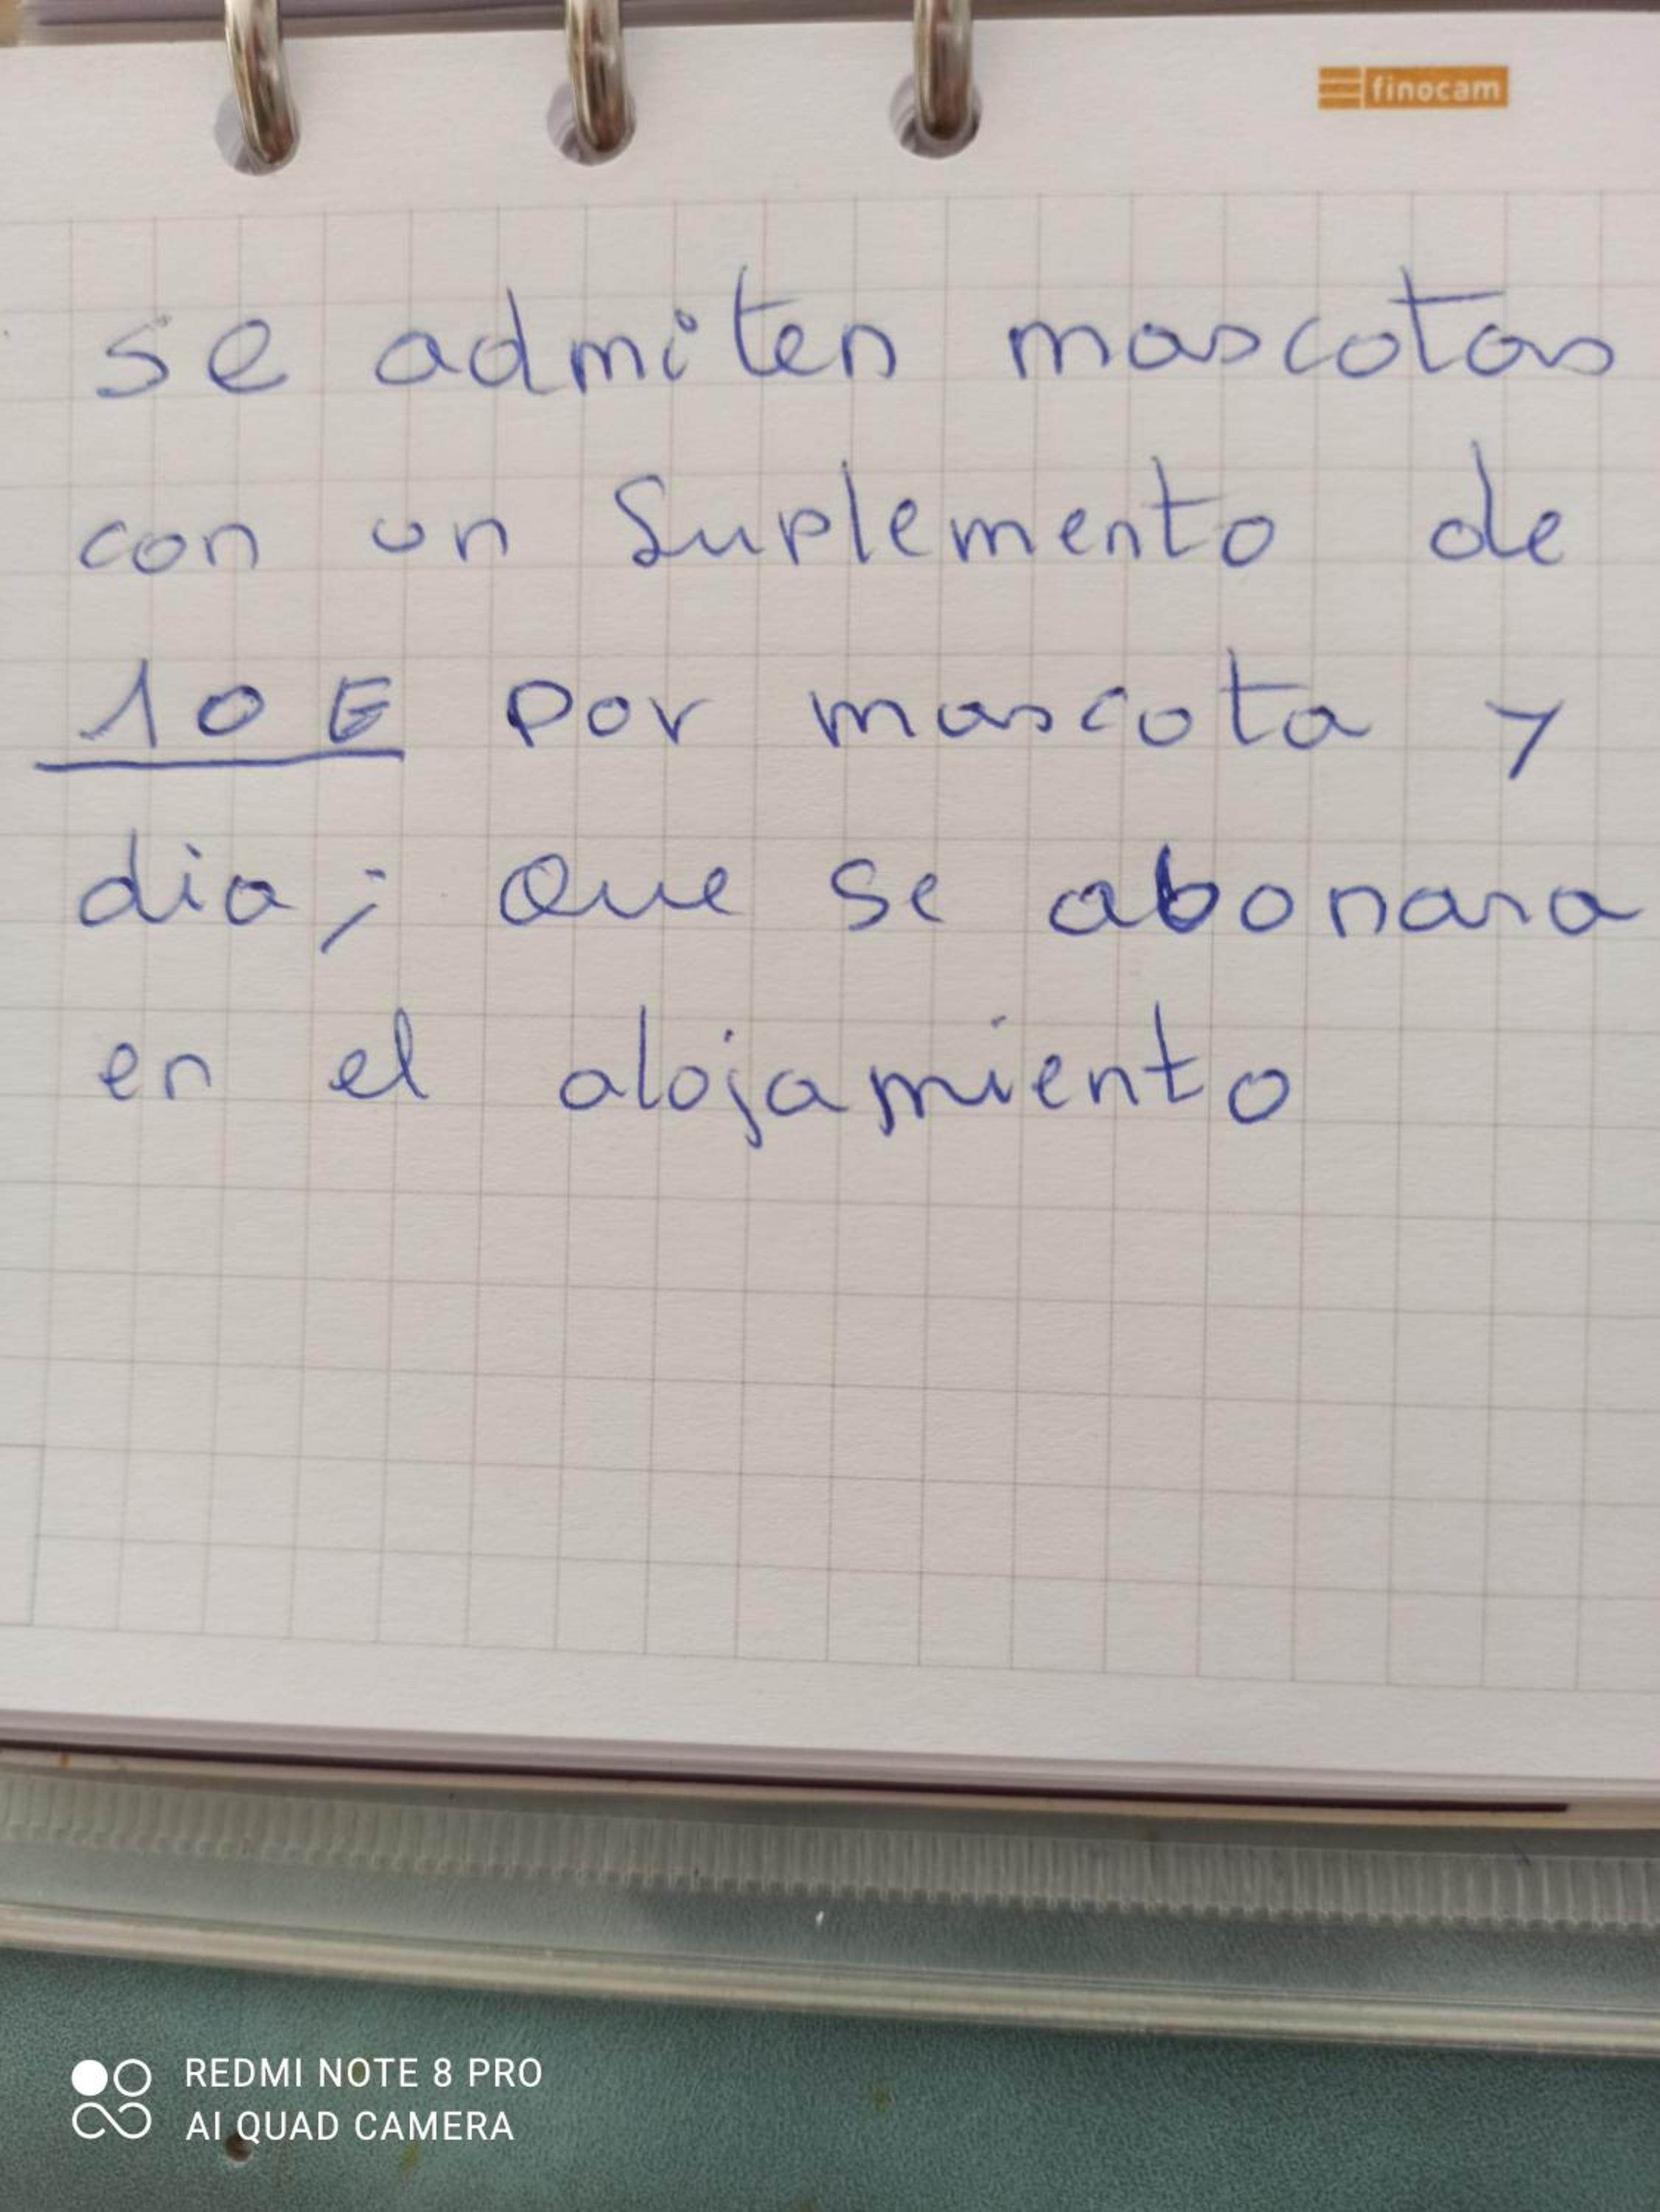 finocam
se admiten mascotas
con un Suplemento de
10 € por mascota y
dia; que se abonara
en el alojamiento
REDMI NOTE 8 PRO
AI QUAD CAMERA